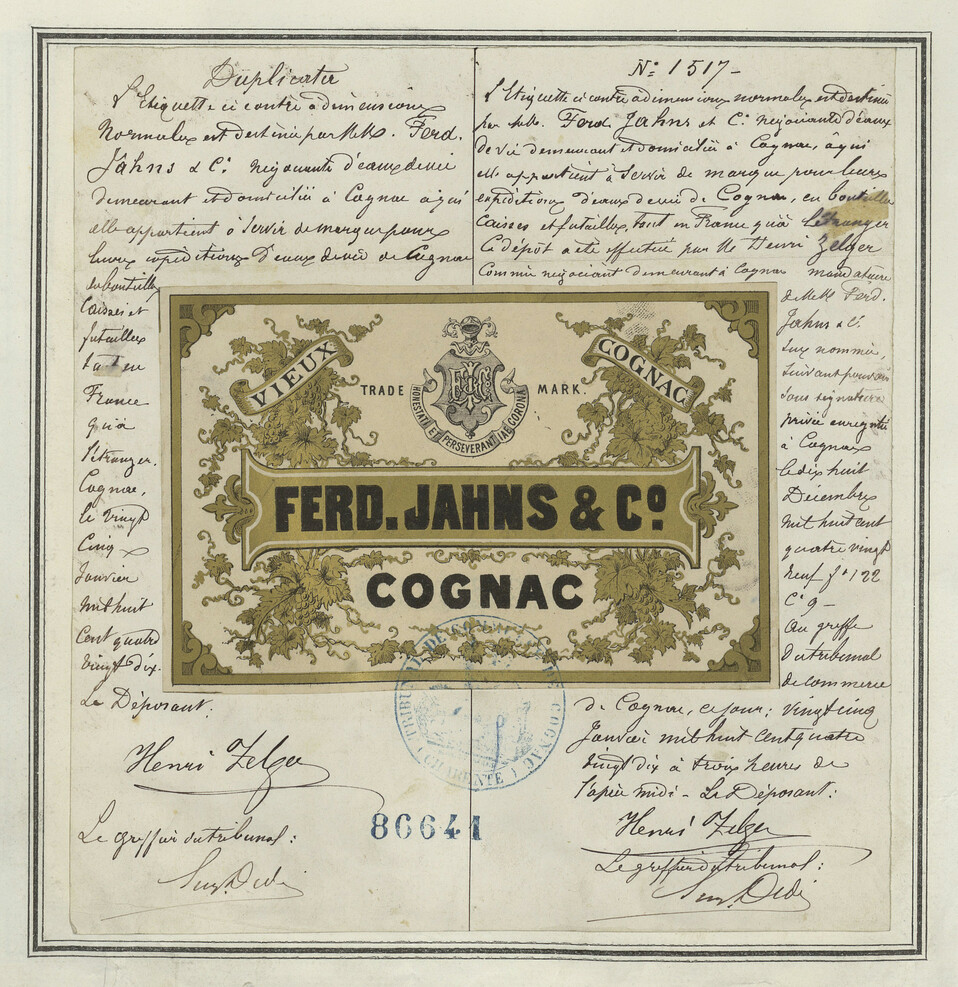 Duplicata
L'Etiquette ci contre à dimensions
Normales est destinée par MMrs. Ferd.
Jahns & Cie. Négociants d'eaux de vie
demeurant et domiciliés à Cognac à qui
elle appartient à servir de marque pour
leurs expéditions d'eaux de vie de Cognac
en bouteilles
Caisses et
futailles
tant en
France
qu'à
l'étranger.
Cognac,
le vingt
Cinq
Janvier
mil huit
Cent quatre
vingt dix.
Le Déposant.
Henri Zelger
Le greffier du tribunal:
No. 1517-
L'Etiquette ci contre à dimensions normales est destinée
par MM. Ferd. Jahns et Cie. négociants d'eaux
de vie demeurant et domiciliés à Cognac, à qui
elle appartient à servir de marque pour leurs
expéditions d'eaux de vie de Cognac, en bouteilles
Caisses et futailles, tant en France qu'à l'étranger
Le dépôt a été effectué par Mr Henri Zelger
Commis négociant demeurant à Cognac mandataire
de MMrs Ferd.
Jahns & Cie.
sus nommés,
suivant pouvoir
sous signature
privée enregistré
à Cognac
le dix huit
Décembre
mil huit cent
quatre vingt
neuf fo 122
Ce 9 -
au greffe
du tribunal
de commerce
de Cognac, ce jour; vingt cinq
Janvier mil huit cent quatre
vingt dix à trois heures de
l'après midi - Le Déposant:
Henri Zelger
Le greffier du tribunal:
VIEUX
COGNAC
TRADE MARK.
HONESTAS ET PERSEVERANTIAE CORONA
FERD. JAHNS & Co.
COGNAC
TRIBUNAL DE COMMERCE DE COGNAC
(CHARENTE)
86641